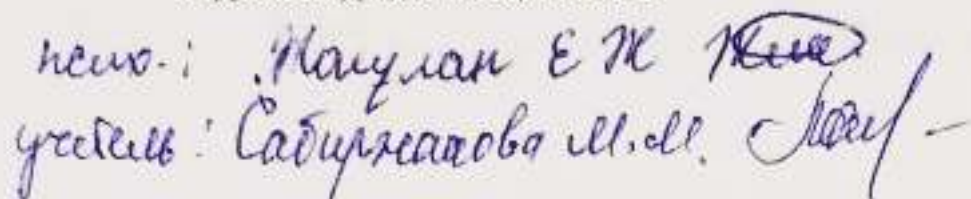 псих.: Маулан Е Ж
учитель: Сабиржанова М.М.